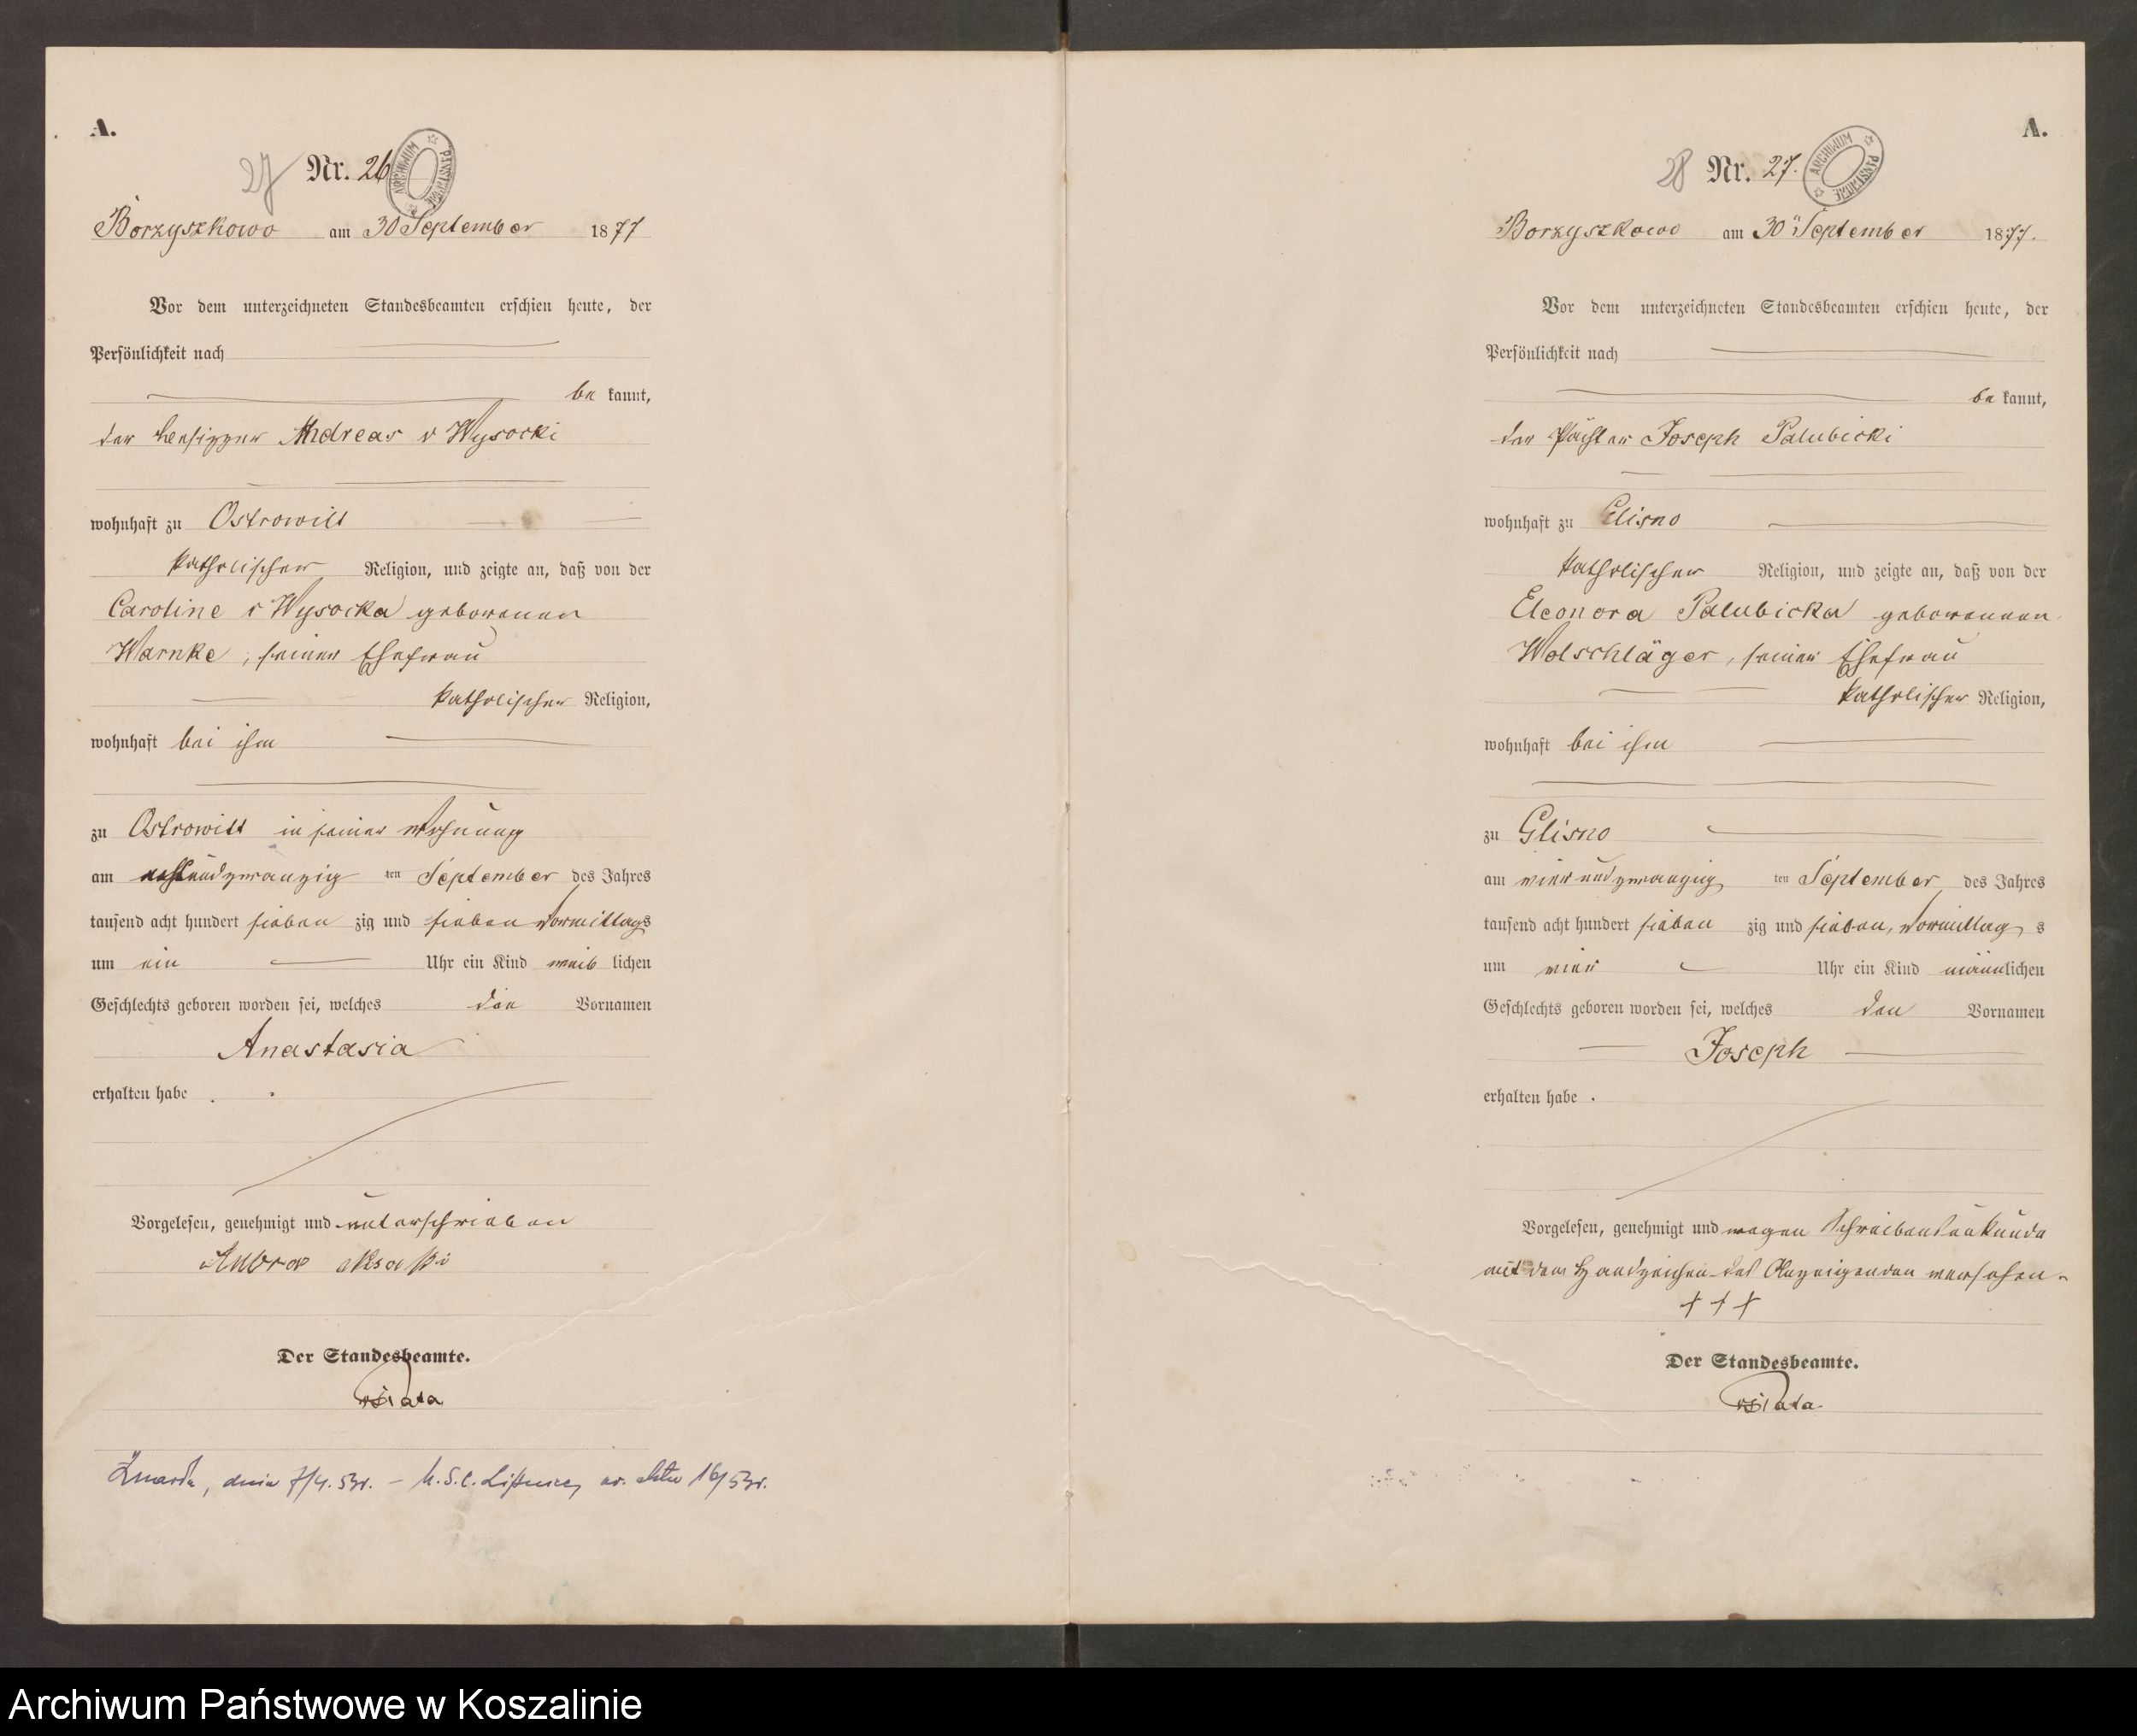 A.
27 Nr. 26
ARCHIWUM PAŃSTWOWE
Borzyszkowo am 30 September 1877
Vor dem unterzeichneten Standesbeamten erschien heute, der
Persönlichkeit nach
be kannt,
der Andreas v Wysocki
wohnhaft zu Ostrowitt
katholischer Religion, und zeigte an, daß von der
Caroline v Wysocka geborenen
Warnke, seiner Ehefrau
katholischer Religion,
wohnhaft bei ihm
zu Ostrowitt in seiner Wohnung
am undzwanzig ten September des Jahres
tausend acht hundert sieben zig und sieben Vormittags
um ein Uhr ein Kind weib lichen
Geschlechts geboren worden sei, welches den Vornamen
Anastasia
erhalten habe.
Vorgelesen, genehmigt und unterschrieben
Der Standesbeamte.
dnia 7/4.53r. – U.S.C. nr. aktu 16/53r.
A.
28 Nr. 27.
ARCHIWUM PAŃSTWOWE
Borzyszkowo am 30 September 1877.
Vor dem unterzeichneten Standesbeamten erschien heute, der
Persönlichkeit nach
be kannt,
der Pächter Joseph Palubicki
wohnhaft zu Glisno
katholischer Religion, und zeigte an, daß von der
Eleonora Palubicka geborennen
Wolschläger, seiner Ehefrau
katholischer Religion,
wohnhaft bei ihm
zu Glisno
am vier und zwanzig ten September des Jahres
tausend acht hundert sieben zig und sieben, Vormittag s
um vier Uhr ein Kind männlichen
Geschlechts geboren worden sei, welches den Vornamen
Joseph
erhalten habe.
Vorgelesen, genehmigt und wegen Schreibensunkunde
mit dem Handzeichen des Anzeigenden versehen.
+++
Der Standesbeamte.
Archiwum Państwowe w Koszalinie